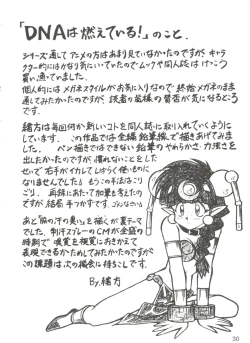 「DNAは燃えている!」のこと.
シリーズ通して アニメの方はあまり見ていなかったのですが、キャラ
クター的にはかなり気にいっていたので ムックや同人誌は けっこう
買い漁っていました.
個人的には メガネスタイルがお気に入りなので 終始メガネのまま
通してみたかったのですが 読者の皆様の賛否が気になるところ
です.
緒方は毎回何か新しいコトを同人誌に取り入れていくように
しています. この作品では全編 鉛筆線で描きあげてみま
した. ペン描きではできない鉛筆のやわらかさ 力強さを
出したかったのですが 慣れないことをした
せいで 右手がイカレて しばらく使いものに
なりませんでした
再録にあたって加筆も考えたの
ですが 結局 手つかずです. ごめんなさい
あと「脇の汗の臭い」を描くが裏テーマ
でした. 制汗スプレーのCMが全盛の
時期で 嗅覚を視覚におきかえて
表現できるかためしてみたかったのですが
この課題は次の機会に持ちこしです.
By.緒方
30